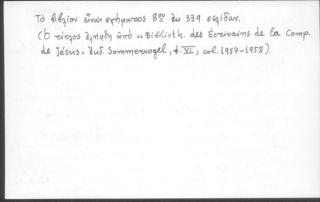 Τὸ βιβλίον εἶναι σχήματος 8ον ἐκ 339 σελίδων.
(Ὁ τίτλος ἐλήφθη ἀπὸ "Biblioth. des Écrivains de la Comp.
de Jésus" Sommervogel, t. VI, col. 1957-1958).